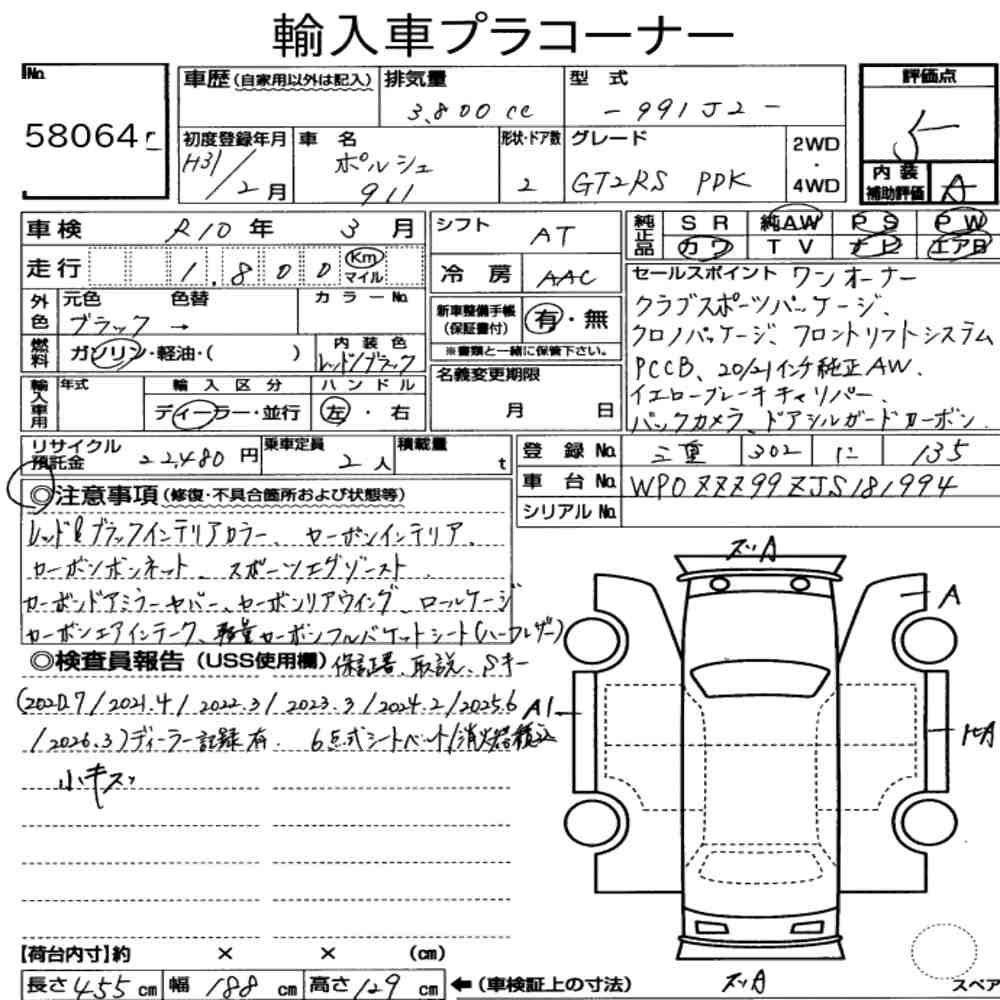 輸入車プラコーナー
No. 58064
車歴(自家用以外は記入) 排気量 3,800cc 型式 -991J2-
評価点 5
初度登録年月 H31/2月 車名 ポルシェ 911 形状・ドア数 2 グレード GT2RS PDK 2WD・4WD
内装補助評価 A
車検 R10年 3月 シフト AT
純正品 SR 純AW PS PW
カワ TV ナビ エアB
走行 1,800 Km マイル 冷房 AAC
外色 元色 ブラック → 色替 カラーNo.
新車整備手帳(保証書付) 有・無
※書類と一緒に保管下さい。
燃料 ガソリン・軽油・( ) 内装色 レッド/ブラック
名義変更期限 月 日
輸入車用 年式 輸入区分 ディーラー・並行 ハンドル 左・右
セールスポイント ワンオーナー
クラブスポーツパッケージ、
クロノパッケージ、フロントリフトシステム
PCCB、20/21インチ純正AW、
イエローブレーキキャリパー、
バックカメラ、ドアシルガードカーボン
リサイクル預託金 22,480円 乗車定員 2人 積載量 t
登録No. 三重 302 に 135
車台No. WP0ZZZ99ZJS181994
シリアルNo.
◎注意事項(修復・不具合箇所および状態等)
レッド&ブラックインテリアカラー、カーボンインテリア、
カーボンボンネット、スポーツエグゾースト、
カーボンドアミラーカバー、カーボンリアウイング、ロールケージ
カーボンエアインテーク、軽量カーボンフルバケットシート(ハーフレザー)
◎検査員報告(USS使用欄) 保証書、取説、Sキー
(2020.7/2021.4/2022.3/2023.3/2024.2/2025.6
/2026.3)ディーラー記録有 6点式シートベルト/消火器積込
小キズ
ズリA
A
A1
トA
ズリA
【荷台内寸】約 × × (cm)
長さ455cm 幅188cm 高さ129cm ←(車検証上の寸法)
スペア